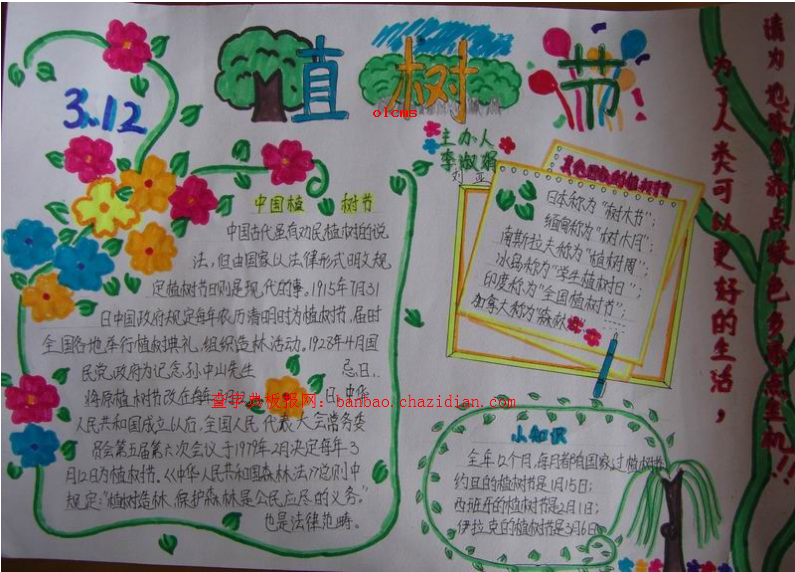 3.12
植树节
olcms
主办人
李淑娟
刘亚
中国植树节
中国古代虽有劝民植树的说
法，但由国家以法律形式明文规
定植树节日则是现代的事。1915年7月31
日中国政府规定每年农历清明时为植树节，届时
全国各地举行植树典礼，组织造林活动。1928年4月国
民党政府为记念孙中山先生 忌日、
将原植树节改在每年3月 日，中华
查字典板报网：banbao.chazidian.com
人民共和国成立以后，全国人民代表大会常务委
员会第五届第六次会议于1979年2月决定每年3
月12日为植树节。《中华人民共和国森林法》总则中
规定："植树造林、保护森林是公民应尽的义务。"
也是法律范畴。
的植树节
日本称为"树木节"；
缅甸称为"树木月"；
南斯拉夫称为"植树周"；
冰岛称为"学生植树日"；
印度称为"全国植树节"；
加拿大称为"森林
小知识
全年12个月，每月都有国家过植树节
约旦的植树节是1月15日；
西班牙的植树节是2月1日；
伊拉克的植树节是3月6日
为了人类可以更好的生活，
请为地球多添点绿色多添点生机!!